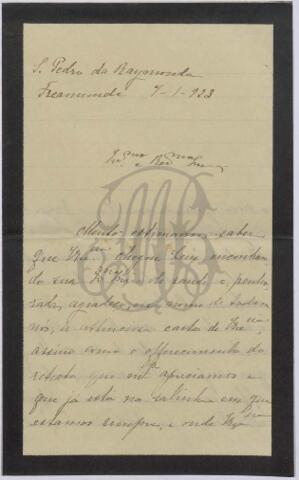 S. Pedro da Raymonda
Freamunde 7-1-923
Ex.mo e Rev.mo Snr.
Muito estimamos saber
que V.Ex.cia chegou bem, encontran
do sua de saude e, penho
rada, agradeço, em nome de todos
nós, a attenciosa carta de V. Ex.cia,
assim como o offerecimento do
retrato que mt.º apreciamos e
que já está na salinha em que
estamos sempre, e onde V. Ex.cia